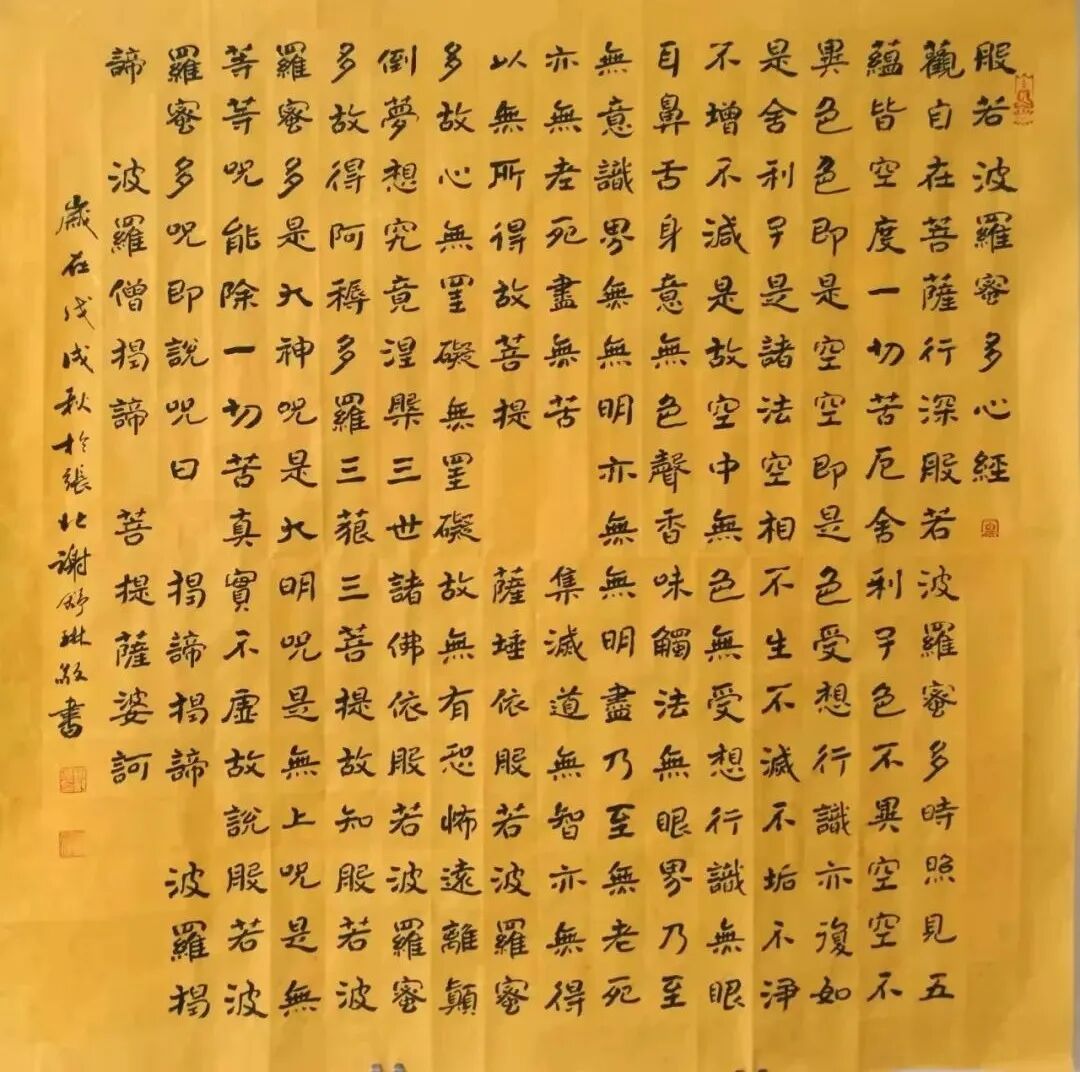 般若波羅蜜多心經
觀自在菩薩行深般若波羅蜜多時照見五
蘊皆空度一切苦厄舍利子色不異空空不
異色色即是空空即是色受想行識亦復如
是舍利子是諸法空相不生不滅不垢不淨
不增不減是故空中無色無受想行識無眼
耳鼻舌身意無色聲香味觸法無眼界乃至
無意識界無無明亦無無明盡乃至無老死
亦無老死盡無苦 集滅道無智亦無得
以無所得故菩提 薩埵依般若波羅蜜
多故心無罣礙無罣礙故無有恐怖遠離顛
倒夢想究竟涅槃三世諸佛依般若波羅蜜
多故得阿耨多羅三藐三菩提故知般若波
羅蜜多是大神呪是大明呪是無上呪是無
等等呪能除一切苦真實不虛故說般若波
羅蜜多呪即說呪曰 揭諦揭諦 波羅揭
諦 波羅僧揭諦 菩提薩婆訶
歲在戊戌秋於張北謝舒琳敬書